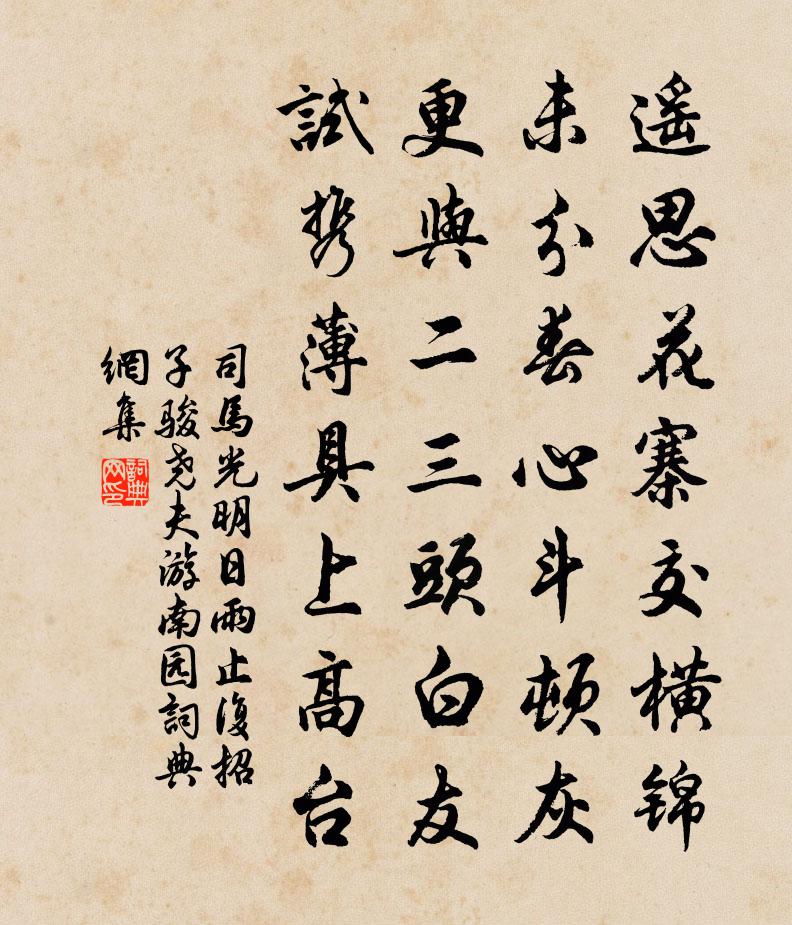 遥思花寨交橫锦
未分春心斗頓灰
更與二三頭白友
試携薄具上高台
司馬光明日雨止復招
子骏尧夫游南园詞典
網集
詞典网印